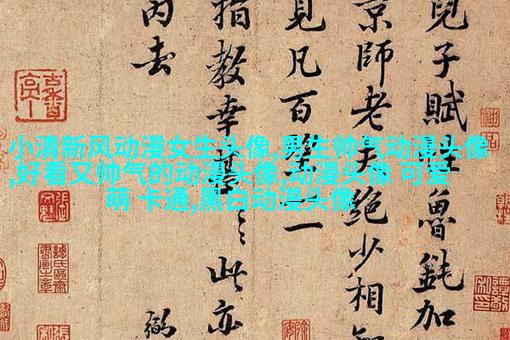 小清新风动漫女生头像,男生帅气动漫头像
,好看又帅气的动漫头像,动漫头像 可爱
萌 卡通,黑白动漫头像
兒子賦性魯鈍加
京師老夫絕少相
見凡百
指教幸甚
此亦